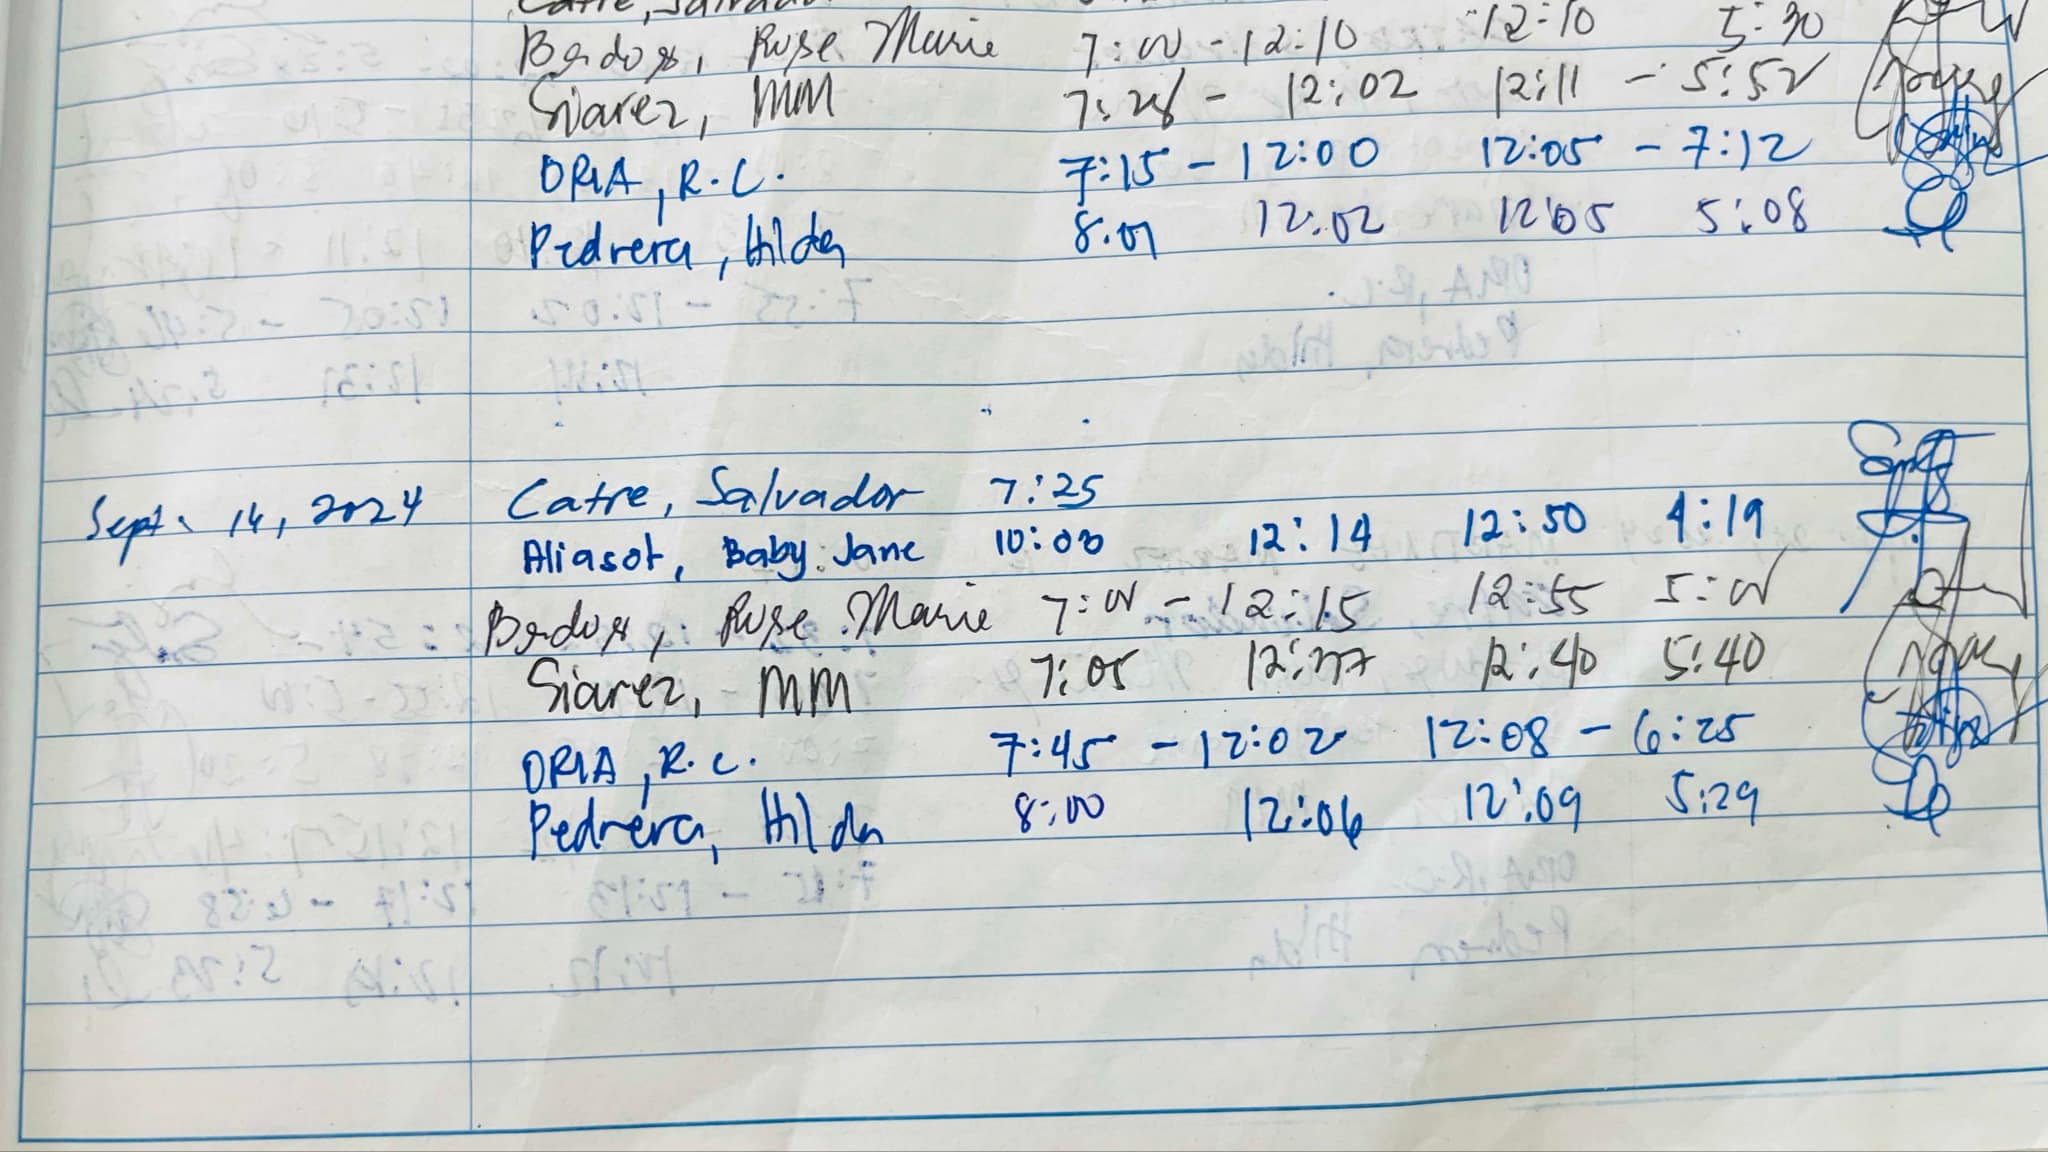 Catre, Salvador
Bedox, Ruse Marie 7:00 - 12:10 12:10 5:30
Siarez, MM 7:28 - 12:02 12:11 - 5:52
ORIA, R.C. 7:15 - 12:00 12:05 - 7:12
Pedrera, Hilda 8:01 12:02 12:05 5:08
Sept. 14, 2024 Catre, Salvador 7:25
Aliasot, Baby Jane 10:00 12:14 12:50 4:19
Bedox, Ruse Marie 7:00 - 12:15 12:55 5:00
Siarez, MM 7:05 12:37 12:40 5:40
ORIA, R.C. 7:45 - 12:02 12:08 - 6:25
Pedrera, Hilda 8:00 12:06 12:09 5:29